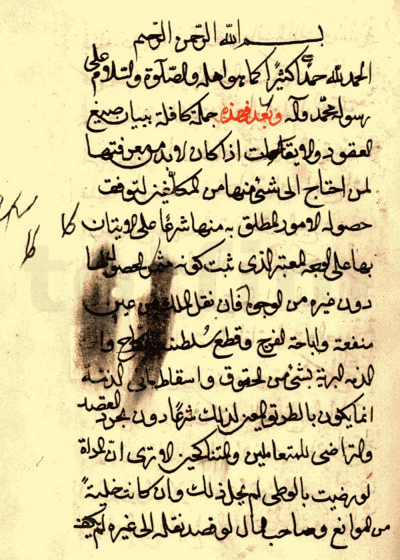 بسم الله الرحمن الرحيم
الحمد لله حمدا كثيرا كما هو اهله والصلوة والسلام على
رسوله محمد وآله وبعد فهذه جملة كافلة ببيان صيغ
العقود والايقاعات اذا كان لابد من معرفتها
لمن احتاج الى شئ منها من المكلفين لتوقف
حصول الامور المطلق به منها شرعا على الاتيان
بها على الوجه المعتبر الذى ثبت كونه
دون غيره من الوجوه فان نقل الملك عين
منفعة واباحة الفرج وقطع سلطنة
الذمة البرية بشئ من الحقوق واسقاط ما فى الذمة
انما يكون بالطريق المعين لذلك شرعا دون مجرد القصد
والتراضى للمتعاملين والمتناكحين الا ترى ان المراة
لو رضيت بالوطى لم يحل ذلك وان كانت خلية
من الموانع وصاحب المال لو قصد نقله الى غيره لم